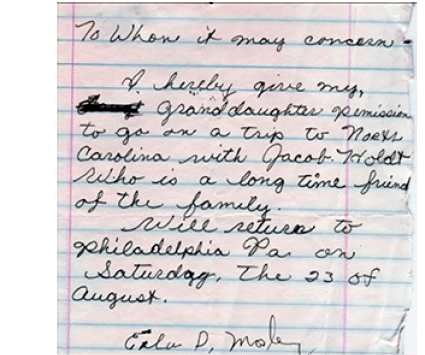 To Whom it may concern -
I hereby give my,
Granddaughter pemission
to go on a trip to North
Carolina with Jacob Holdt
Who is a long time friend
of the family.
Will return to
Philadelphia Pa. on
Saturday, The 23 of
August.
D. Mosley